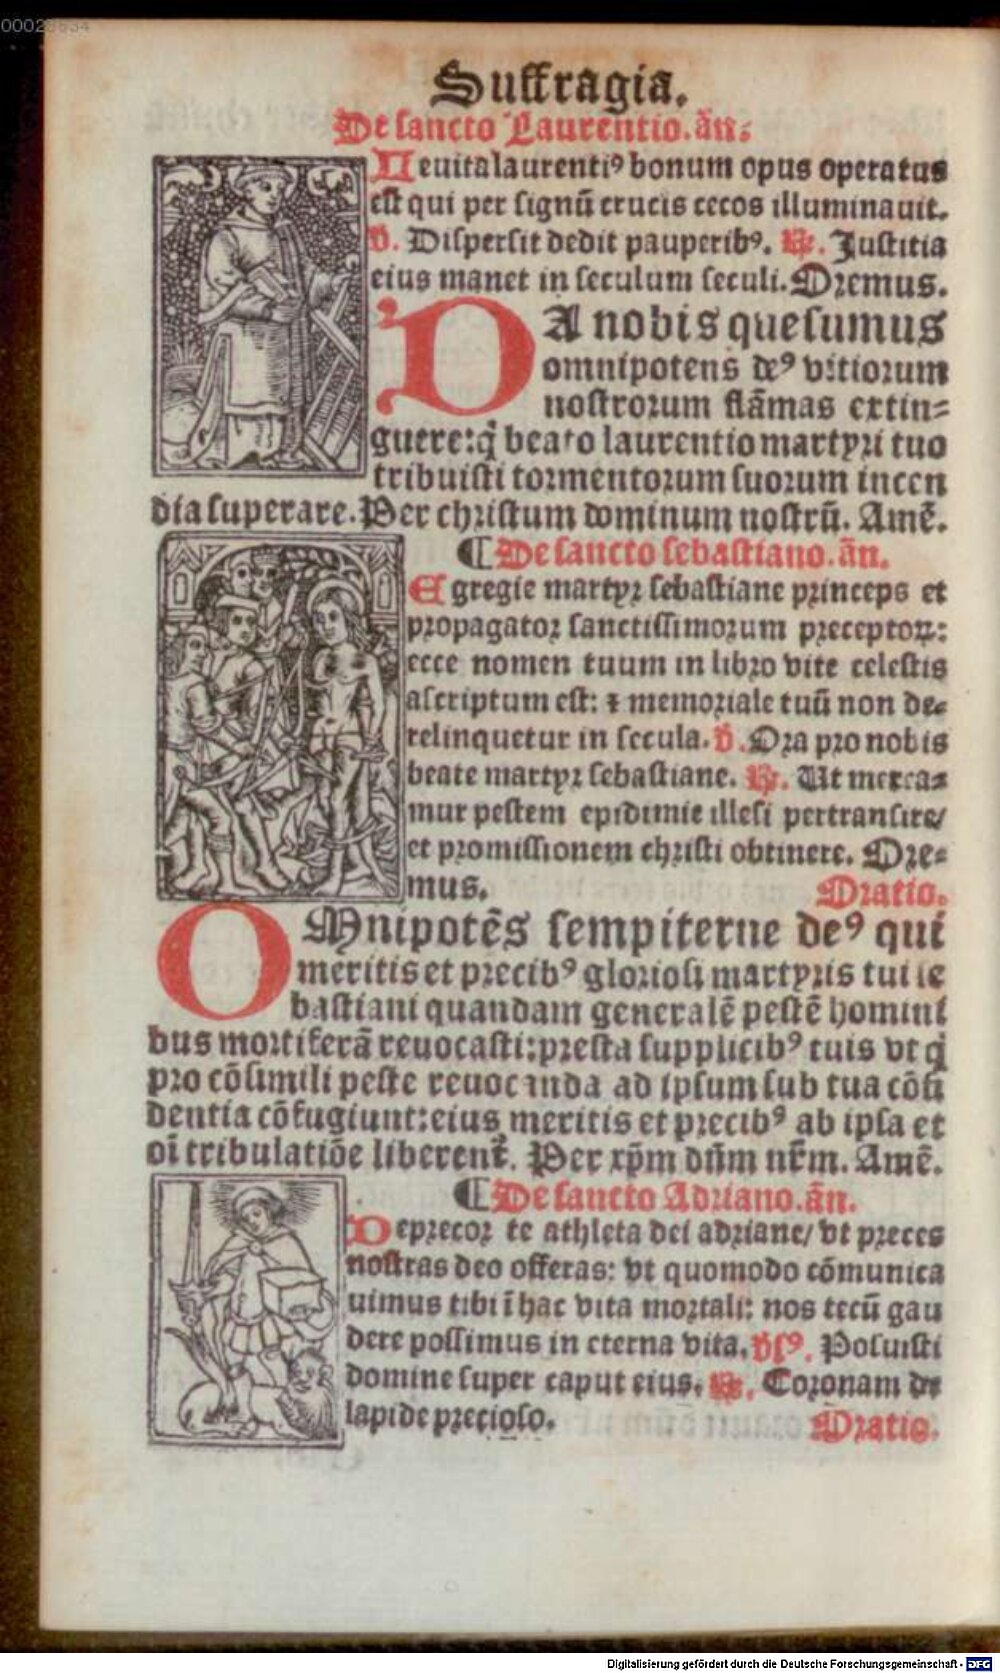 00028634
Suffragia.
De sancto Laurentio. añ.
Leuita laurenti⁹ bonum opus operatus
est qui per signū crucis cecos illuminauit.
℣. Dispersit dedit pauperib⁹. ℟. Justitia
eius manet in seculum seculi. Oremus.
DA nobis quesumus
omnipotens de⁹ vitiorum
nostrorum flāmas extin=
guere: q̇ beato laurentio martyri tuo
tribuisti tormentorum suorum incen
dia superare. Per christum dominum nostrū. Amē.
¶ De sancto sebastiano. añ.
Egregie martyr sebastiane princeps et
propagator sanctissimorum preceptoꝝ:
ecce nomen tuum in libro vite celestis
ascriptum est: ⁊ memoriale tuū non de=
relinquetur in secula. ℣. Ora pro nobis
beate martyr sebastiane. ℟. Ut merea=
mur pestem epidimie illesi pertransire/
et promissionem christi obtinere. Ore=
mus. Oratio.
OMnipotēs sempiterne de⁹ qui
meritis et precib⁹ gloriosi martyris tui se
bastiani quandam generalē pestē homini
bus mortiferā reuocasti: presta supplicib⁹ tuis vt q̇
pro cōsimili peste reuocanda ad ipsum sub tua cōfi
dentia cōfugiunt: eius meritis et precib⁹ ab ipsa et
oī tribulatiōe liberent̄. Per xp̄m dn̄m nr̄m. Amē.
¶ De sancto Adriano. añ.
Deprecor te athleta dei adriane/ vt preces
nostras deo offeras: vt quomodo cōmunica
uimus tibi ī hac vita mortali: nos tecū gau
dere possimus in eterna vita. ℣s⁹. Posuisti
domine super caput eius. ℟. Coronam de
lapide precioso. Oratio.
Digitalisierung gefördert durch die Deutsche Forschungsgemeinschaft - DFG